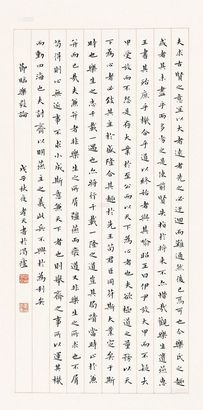 夫求古賢之意宜以大者遠者先之必迂迴而難通然後已焉可也今樂氏之趣
或者其未盡乎而多劣之是使前賢失指於將來不亦惜哉觀樂生遺燕惠
王書其殆庶乎機合乎道以終始者與其喻昭王曰伊尹放大甲而不疑大
甲受放而不怨是存大業於至公而以天下為心者也夫欲極道之量務以天
下為心者必致其主於盛隆合其趣於先王苟君臣同符斯大業定矣于斯
時也樂生之志千載一遇也亦將行千載一隆之道豈其局蹟當時止於兼
并而已哉夫兼并者非樂生之所屑彊燕而廢道又非樂生之所求也不屑
苟得則心無近事不求小成斯意兼天下者也則舉齊之事所以運其機
而動四海也夫討齊以明燕主之義此兵不興於為利矣
節臨樂毅論
戊子秋夜孝天書於